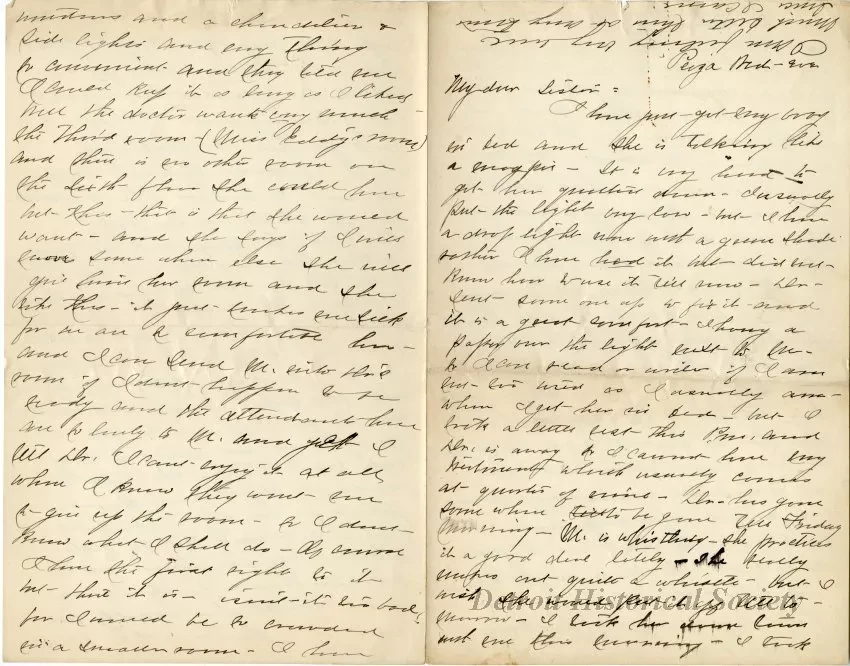 Wed - Eve
My dear Sister =
I have just got my baby
in bed and she is talking like
a magpie - It is very hard to
get her quieted down - I usually
put the light very low - but I have
a drop light now with a green shade
rather I have had it but did not
know how to use it till now - Dr.
sent some one up to fix it and
it is a great comfort - I hang a
paper over the light next to M.
so I can read or write if I am
not so tired as I usually am
when I get her in bed - but I
took a little rest this P.M. and
Dr. is away so I cannot have my
treatment which usually comes
at quarter of nine - Dr. has gone
some where to be gone till Friday
morning - M. is whistling - she practices
it a good deal lately - she really
makes out quite a whistle - but I
wish she
morrow - I took her
out this morning - I took
windows and a chandelier &
side lights and every thing
so convenient and they told me
I could keep it as long as I liked
but the doctor wants very much
the third room - (Miss Eddy's room)
and there is no other room on
the sixth floor she could have
but this - that is that she would
want - and she says if I will
move some where else she will
give her room and she
like this - it just makes me sick
for we are so comfortable here
and I can send M. into this
room if I dont happen to be
ready and the attendants here
are so lovely to M. and yet I
tell Dr. I cant enjoy it at all
when I know they want me
to give up the room - so I dont
know what I shall do - Of course
I have the first right to it
but there it is - isn't it too bad?
for I would be so crowded
in a smaller room - I have
Detroit Historical Society